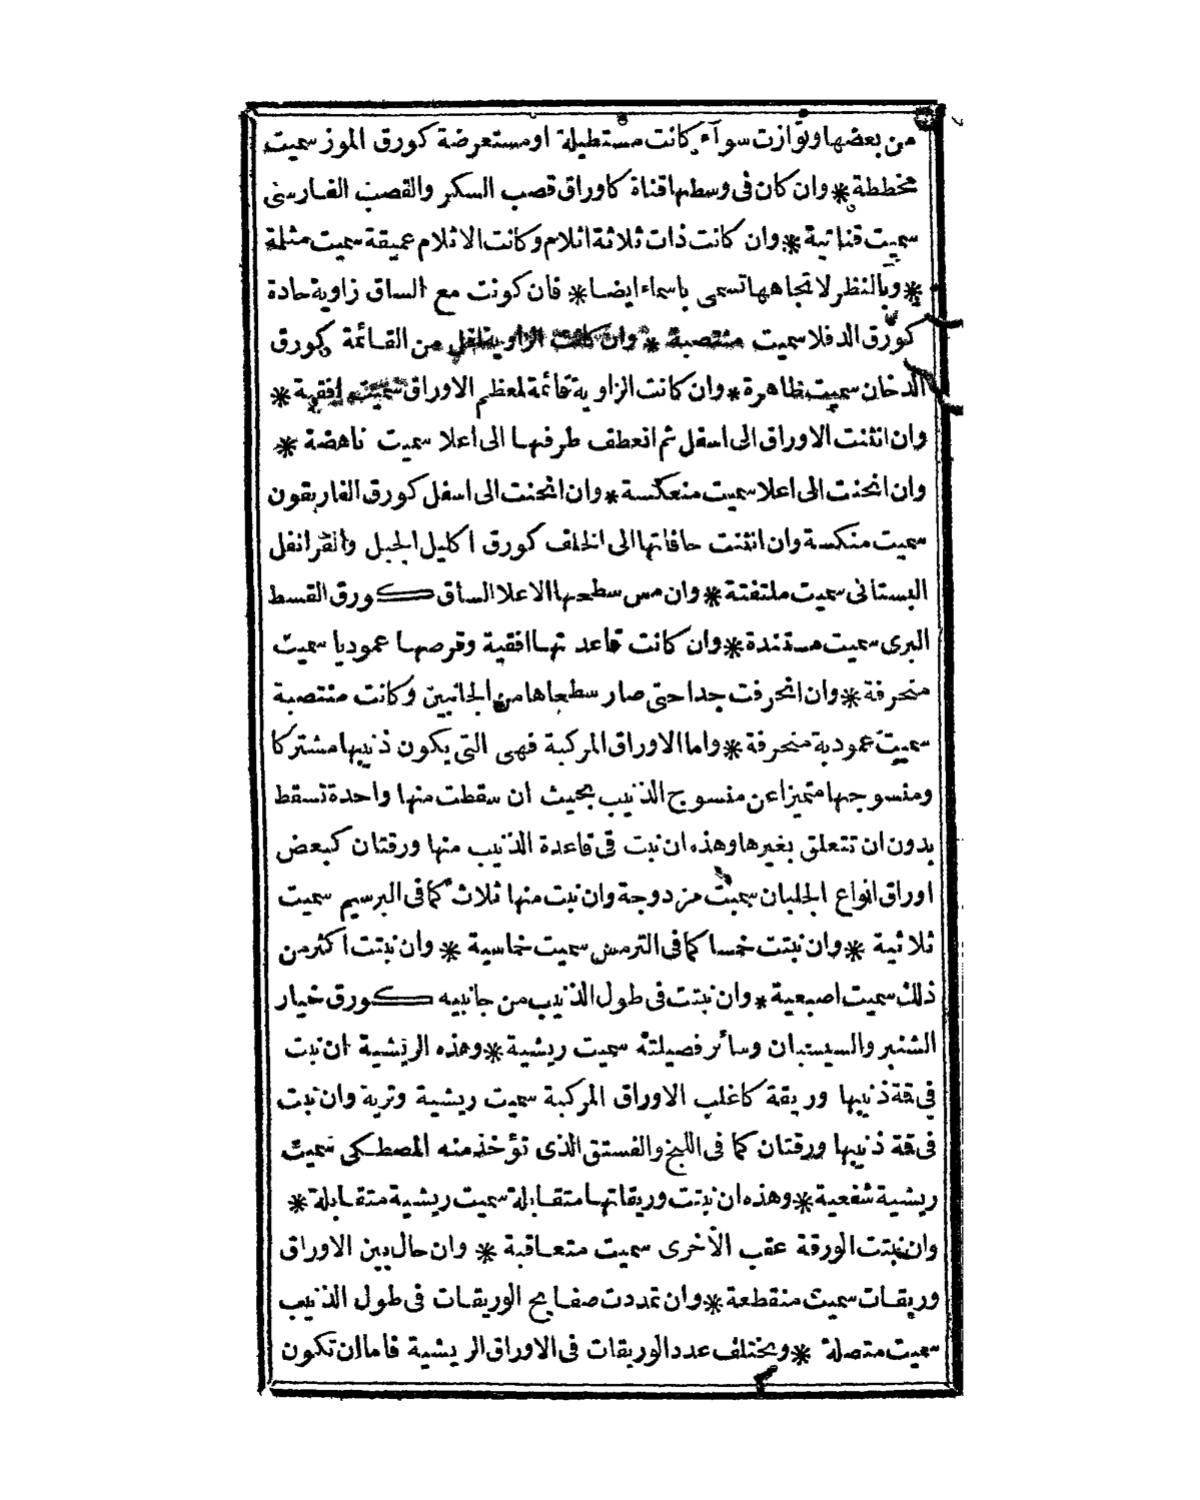 من بعضها وتوازت سوآء كانت مستطيلة او مستعرضة كورق الموز سميت
مخططة * وان كان فى وسطها قناة كاوراق قصب السكر والقصب الفارسى
سميت قناتية * وان كانت ذات ثلاثة اثلام وكانت الاثلام عميقة سميت مثلمة
* وبالنظر لاتجاهها تسمى باسماء ايضا * فان كونت مع الساق زاوية حادة
كورق الدفلا سميت منتصبة * وان كانت الزاوية اقل من القائمة كورق
الدخان سميت ظاهرة * وان كانت الزاوية قائمة لمعظم الاوراق سميت افقية *
وان انثنت الاوراق الى اسفل ثم انعطف طرفها الى اعلا سميت ناهضة *
وان انحنت الى اعلا سميت منعكسة * وان انحنت الى اسفل كورق الغاريقون
سميت منكسة وان انثنت حافاتها الى الخلف كورق اكليل الجبل والقرانفل
البستانى سميت ملتفتة * وان مس سطحها الاعلا الساق كورق القسط
البرى سميت مستندة * وان كانت قاعدتها افقية وقرصها عموديا سميت
منحرفة * وان انحرفت جدا حتى صار سطحاها من الجانبين وكانت منتصبة
سميت عمودية منحرفة * واما الاوراق المركبة فهى التى يكون ذنيبها مشتركا
ومنسوجها متميزا عن منسوج الذنيب بحيث ان سقطت منها واحدة تسقط
بدون ان تتعلق بغيرها وهذه ان نبت فى قاعدة الذنيب منها ورقتان كبعض
اوراق انواع الجلبان سميت مزدوجة وان نبت منها ثلاث كما فى البرسيم سميت
ثلاثية * وان نبتت خمسا كما فى الترمس سميت خماسية * وان نبتت اكثر من
ذلك سميت اصبعية * وان نبتت فى طول الذنيب من جانبيه كورق خيار
الشنبر والسيسبان وسائر فصيلته سميت ريشية * وهذه الريشية ان نبت
فى قمة ذنيبها وريقة كاغلب الاوراق المركبة سميت ريشية وترية وان نبت
فى قمة ذنيبها ورقتان كما فى اللبخ والفستق الذى تؤخذ منه المصطكى سميت
ريشية شفعية * وهذه ان نبتت وريقاتها متقابلة سميت ريشية متقابلة *
وان نبتت الورقة عقب الاخرى سميت متعاقبة * وان حال بين الاوراق
وريقات سميت منقطعة * وان تمددت صفايح الوريقات فى طول الذنيب
سميت متصلة * ويختلف عدد الوريقات فى الاوراق الريشية فاما ان تكون